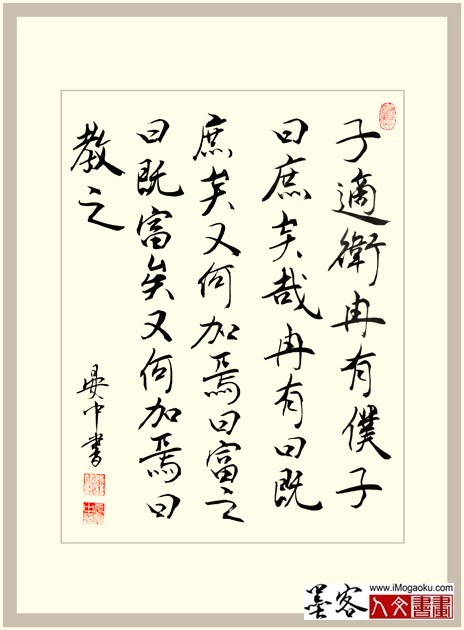 子適衛冉有僕子
曰庶矣哉冉有曰既
庶矣又何加焉曰富之
曰既富矣又何加焉曰
教之
晏中書
墨客
www.iMogaoku.com
人文書畫